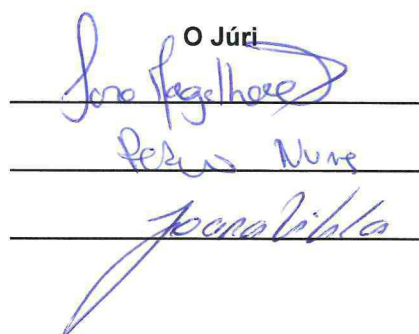 O Júri
Sara Magalhães
Pedro Nunes
Joana Vilela